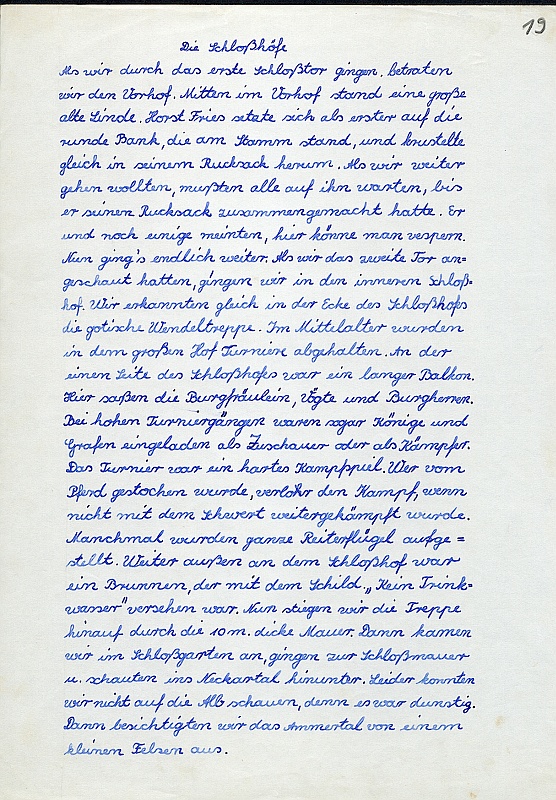 19
Die Schloßhöfe
Als wir durch das erste Schloßtor gingen, betraten
wir den Vorhof. Mitten im Vorhof stand eine große
alte Linde. Horst Fries setzte sich als erster auf die
runde Bank, die am Stamm stand, und krustelte
gleich in seinem Rucksack herum. Als wir weiter
gehen wollten, mußten alle auf ihn warten, bis
er seinen Rucksack zusammengemacht hatte. Er
und noch einige meinten, hier könne man vespern.
Nun ging's endlich weiter. Als wir das zweite Tor an=
geschaut hatten, gingen wir in den inneren Schloß=
hof. Wir erkannten gleich in der Ecke des Schloßhofs
die gotische Wendeltreppe. Im Mittelalter wurden
in dem großen Hof Turniere abgehalten. An der
einen Seite des Schloßhofes war ein langer Balkon.
Hier saßen die Burgfräulein, Vögte und Burgherren.
Bei hohen Turniergängen waren sogar Könige und
Grafen eingeladen als Zuschauer oder als Kämpfer.
Das Turnier war ein hartes Kampfspiel. Wer vom
Pferd gestochen wurde, verlohr den Kampf, wenn
nicht mit dem Schwert weitergekämpft wurde.
Manchmal wurden ganze Reiterflügel aufge=
stellt. Weiter außen an dem Schloßhof war
ein Brunnen, der mit dem Schild „Kein Trink=
wasser" versehen war. Nun stiegen wir die Treppe
hinauf durch die 10 m. dicke Mauer. Dann kamen
wir im Schloßgarten an, gingen zur Schloßmauer
u. schauten ins Neckartal hinunter. Leider konnten
wir nicht auf die Alb schauen, denn es war dunstig.
Dann besichtigten wir das Ammertal von einem
kleinen Felsen aus.